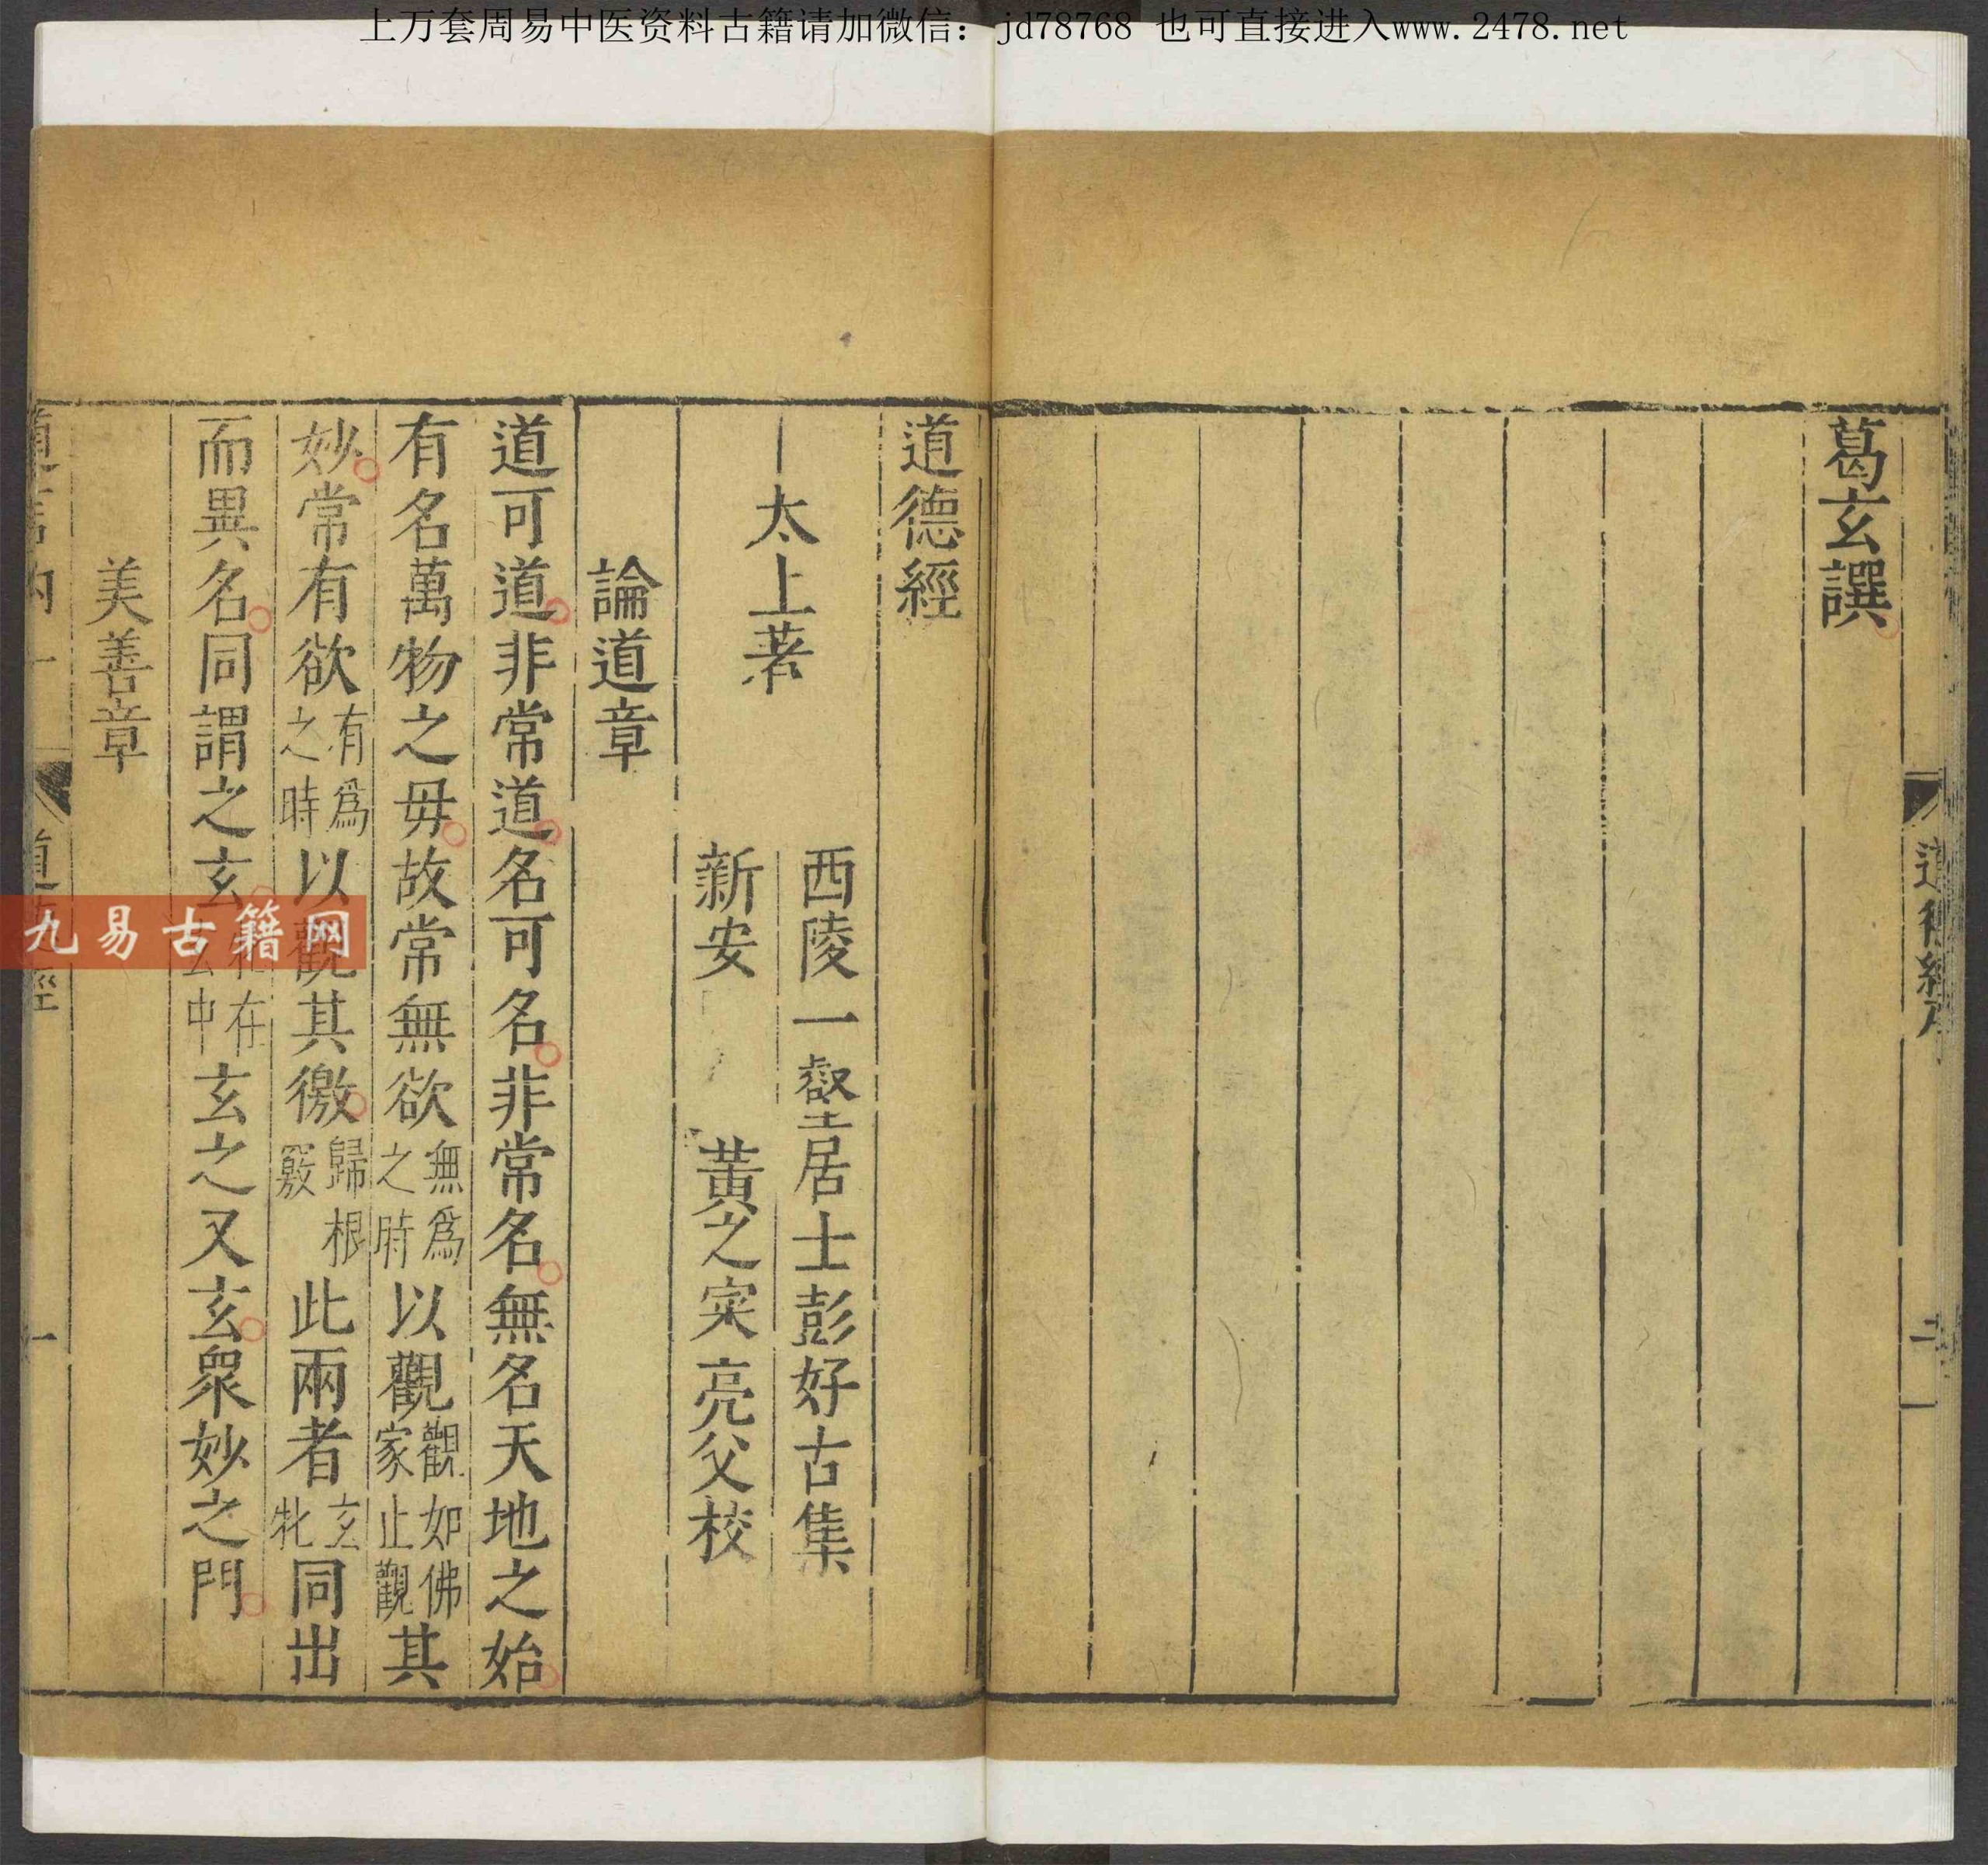 上万套周易中医资料古籍请加微信：jd78768 也可直接进入www.2478.net
葛玄譔
道德經
太上著
西陵一壑居士彭好古集
新安 黃之寀亮父校
論道章
道可道非常道名可名非常名無名天地之始
有名萬物之毋故常無欲無爲之時以觀觀如佛家止觀其
妙常有欲有爲之時以觀其徼歸根竅此兩者玄牝同出
而異名同謂之玄在中玄之又玄衆妙之門
美善章
九易古籍网